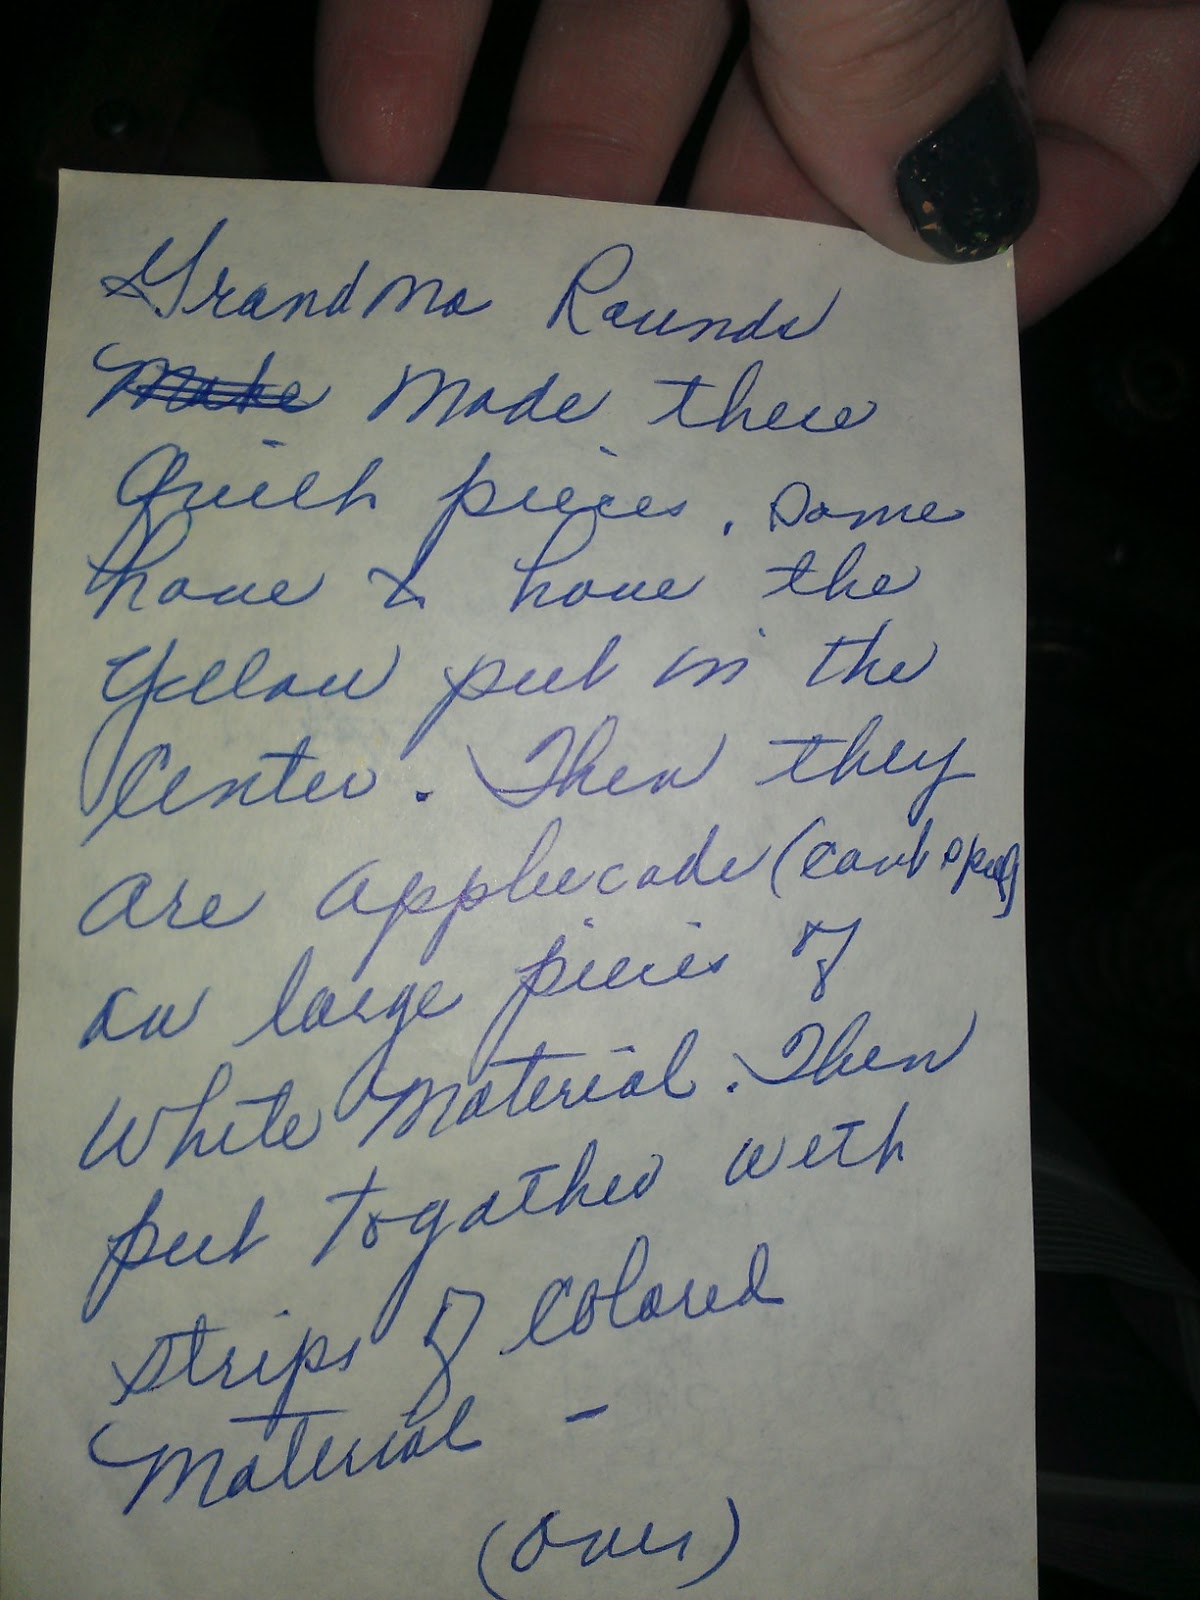 Grandma Rounds
Make Made these
Quilt pieces. Some
have & have the
Yellow put in the
Center. Then they
are applecade (cant spell)
on large pieces of
White Material. Then
put together with
strips of Colored
Material -
(over)